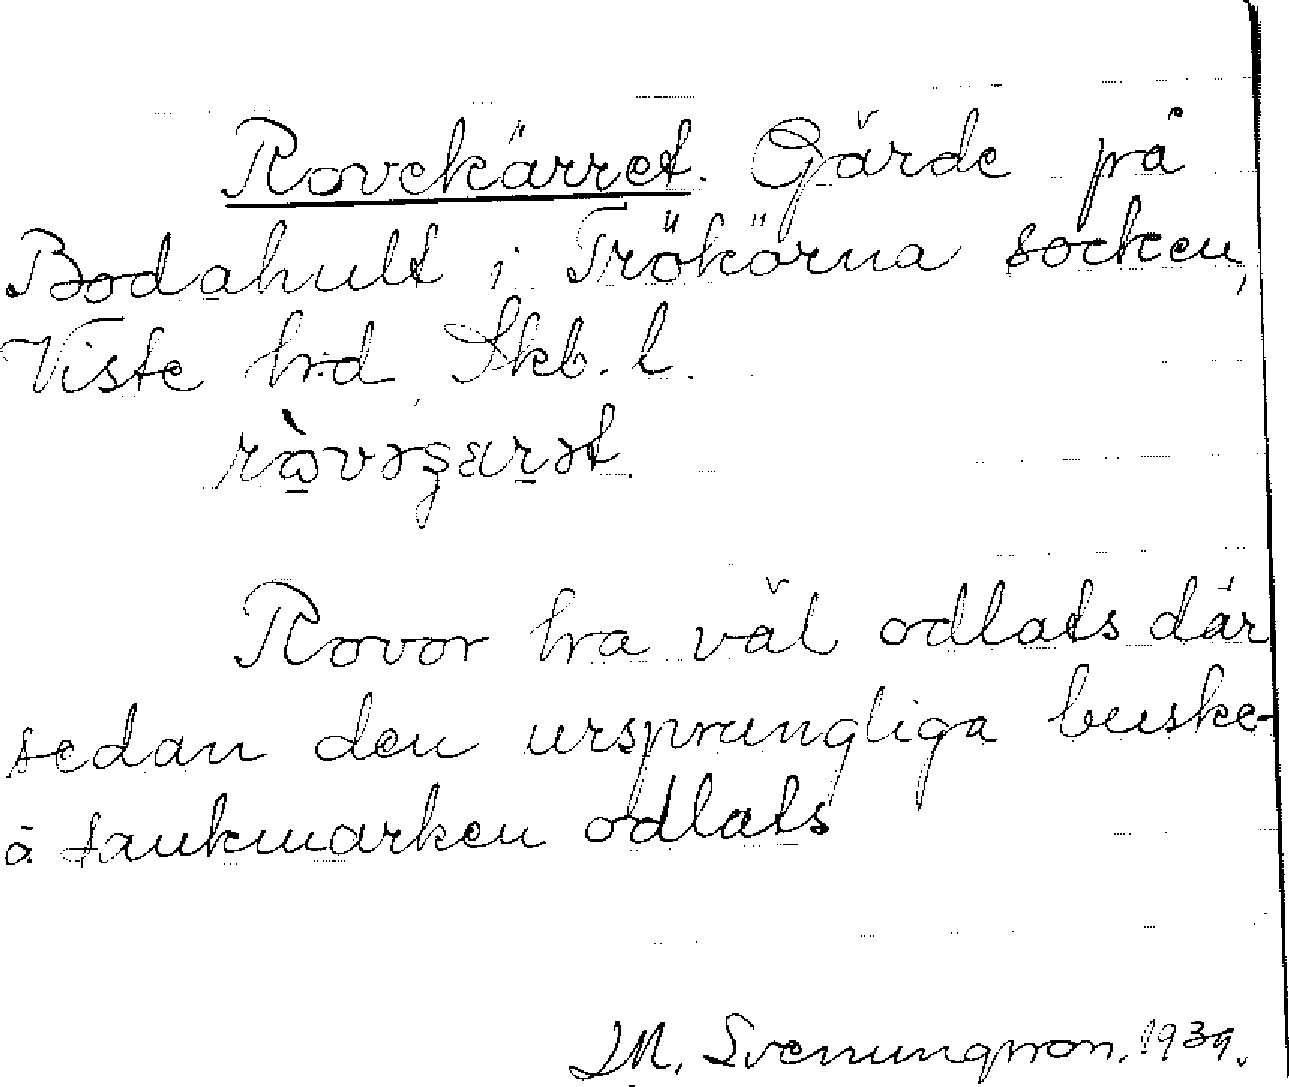 Rovekärret. Gärde på
Bodahult i Trökörna socken,
Viste hrd, Skb. l.
Rovor ha väl odlats där
sedan den ursprungliga buske-
å tankmarken odlats
M. Svenungsson. 1939.